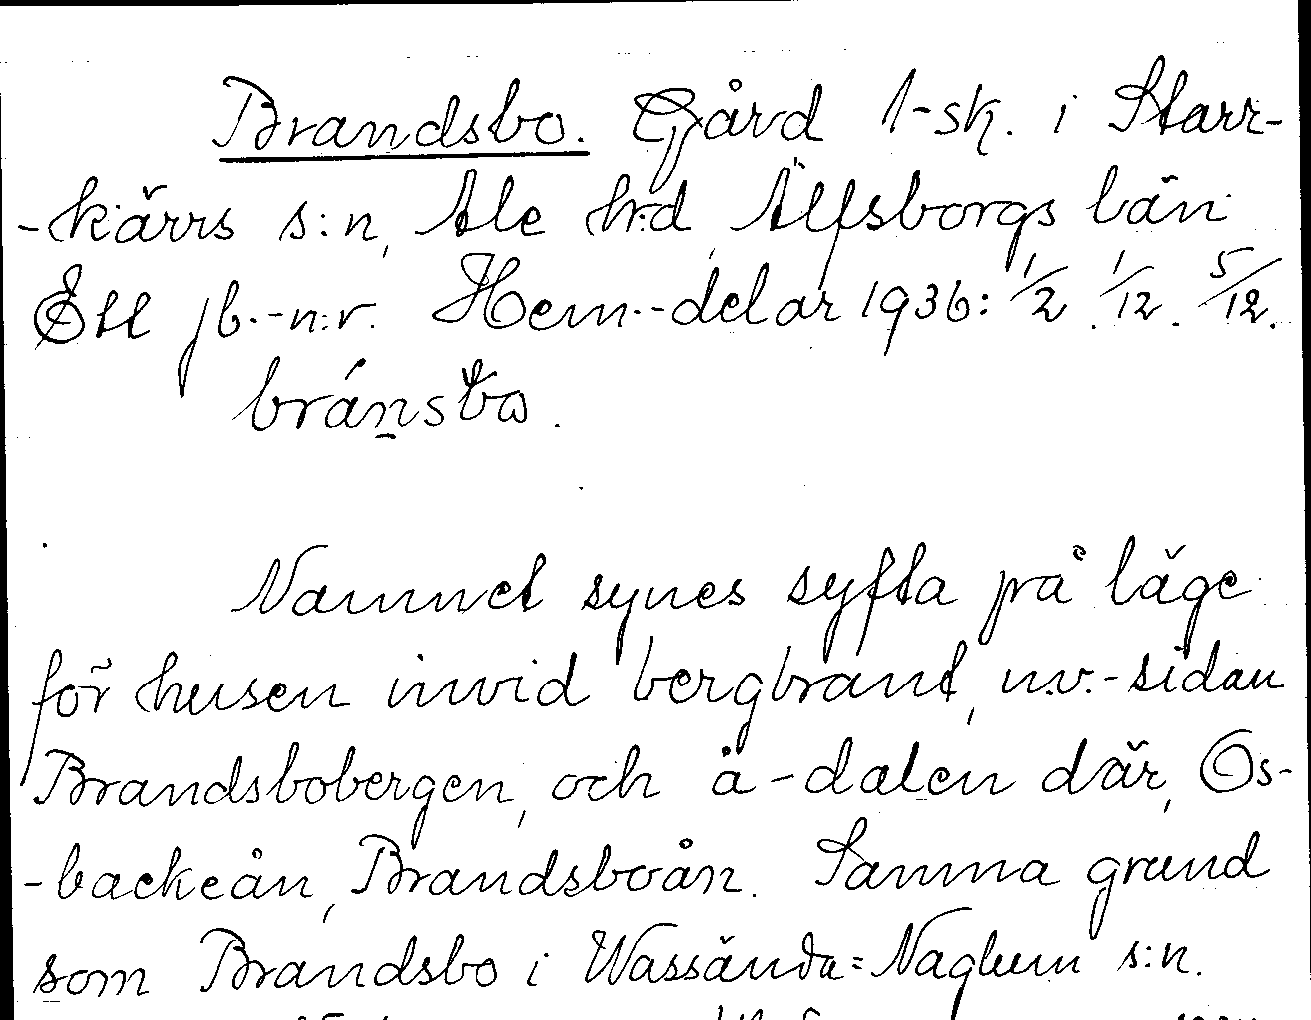 Brandsbo. Gård 1-sk. i Starr-
-kärrs s:n, Ale h:d, Älfsborgs län
Ett jb.-n:r. Hem.-delar 1936: 1/2. 1/12. 5/12.
bránsbω.
Namnet synes syfta på läge
för husen invid bergbrant, n.v.-sidan
Brandsbobergen, och å-dalen där, Os-
-backeån, Brandsboån. Samma grund
som Brandsbo i Wassända=Naglum s:n.